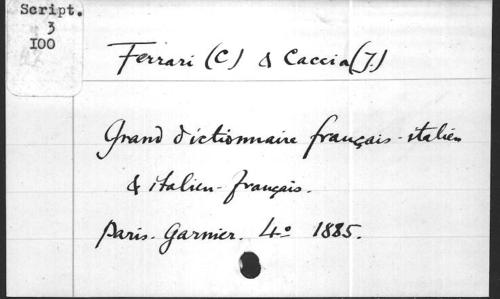 Script.
3
IOO
Ferrari (C) & Caccia (J.)
Grand dictionnaire français-italien
& italien-français.
Paris. Garnier. 4º 1885.